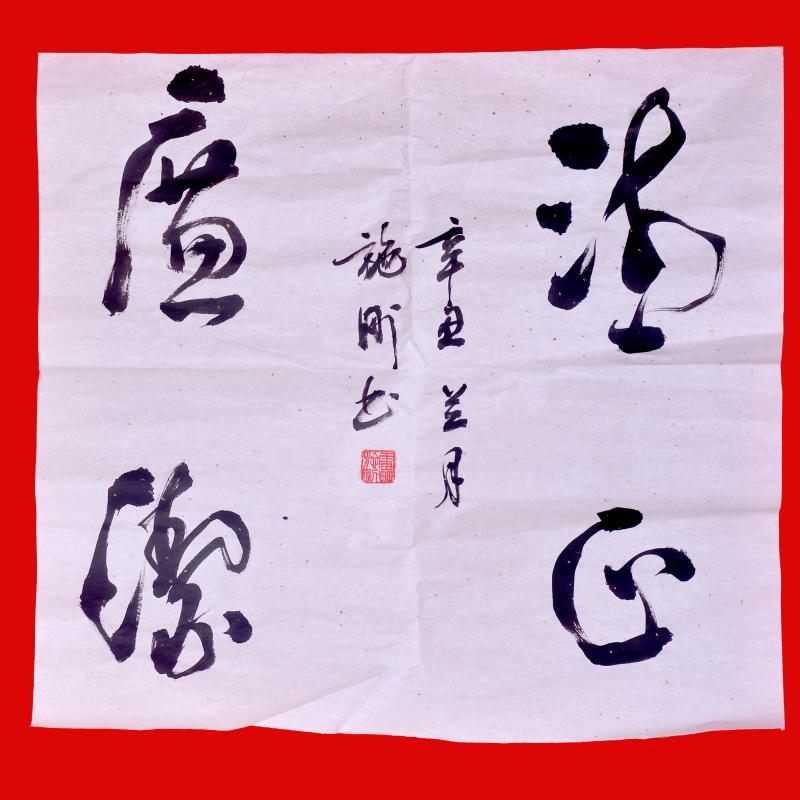 清正
廉潔
辛丑兰月
施刚书